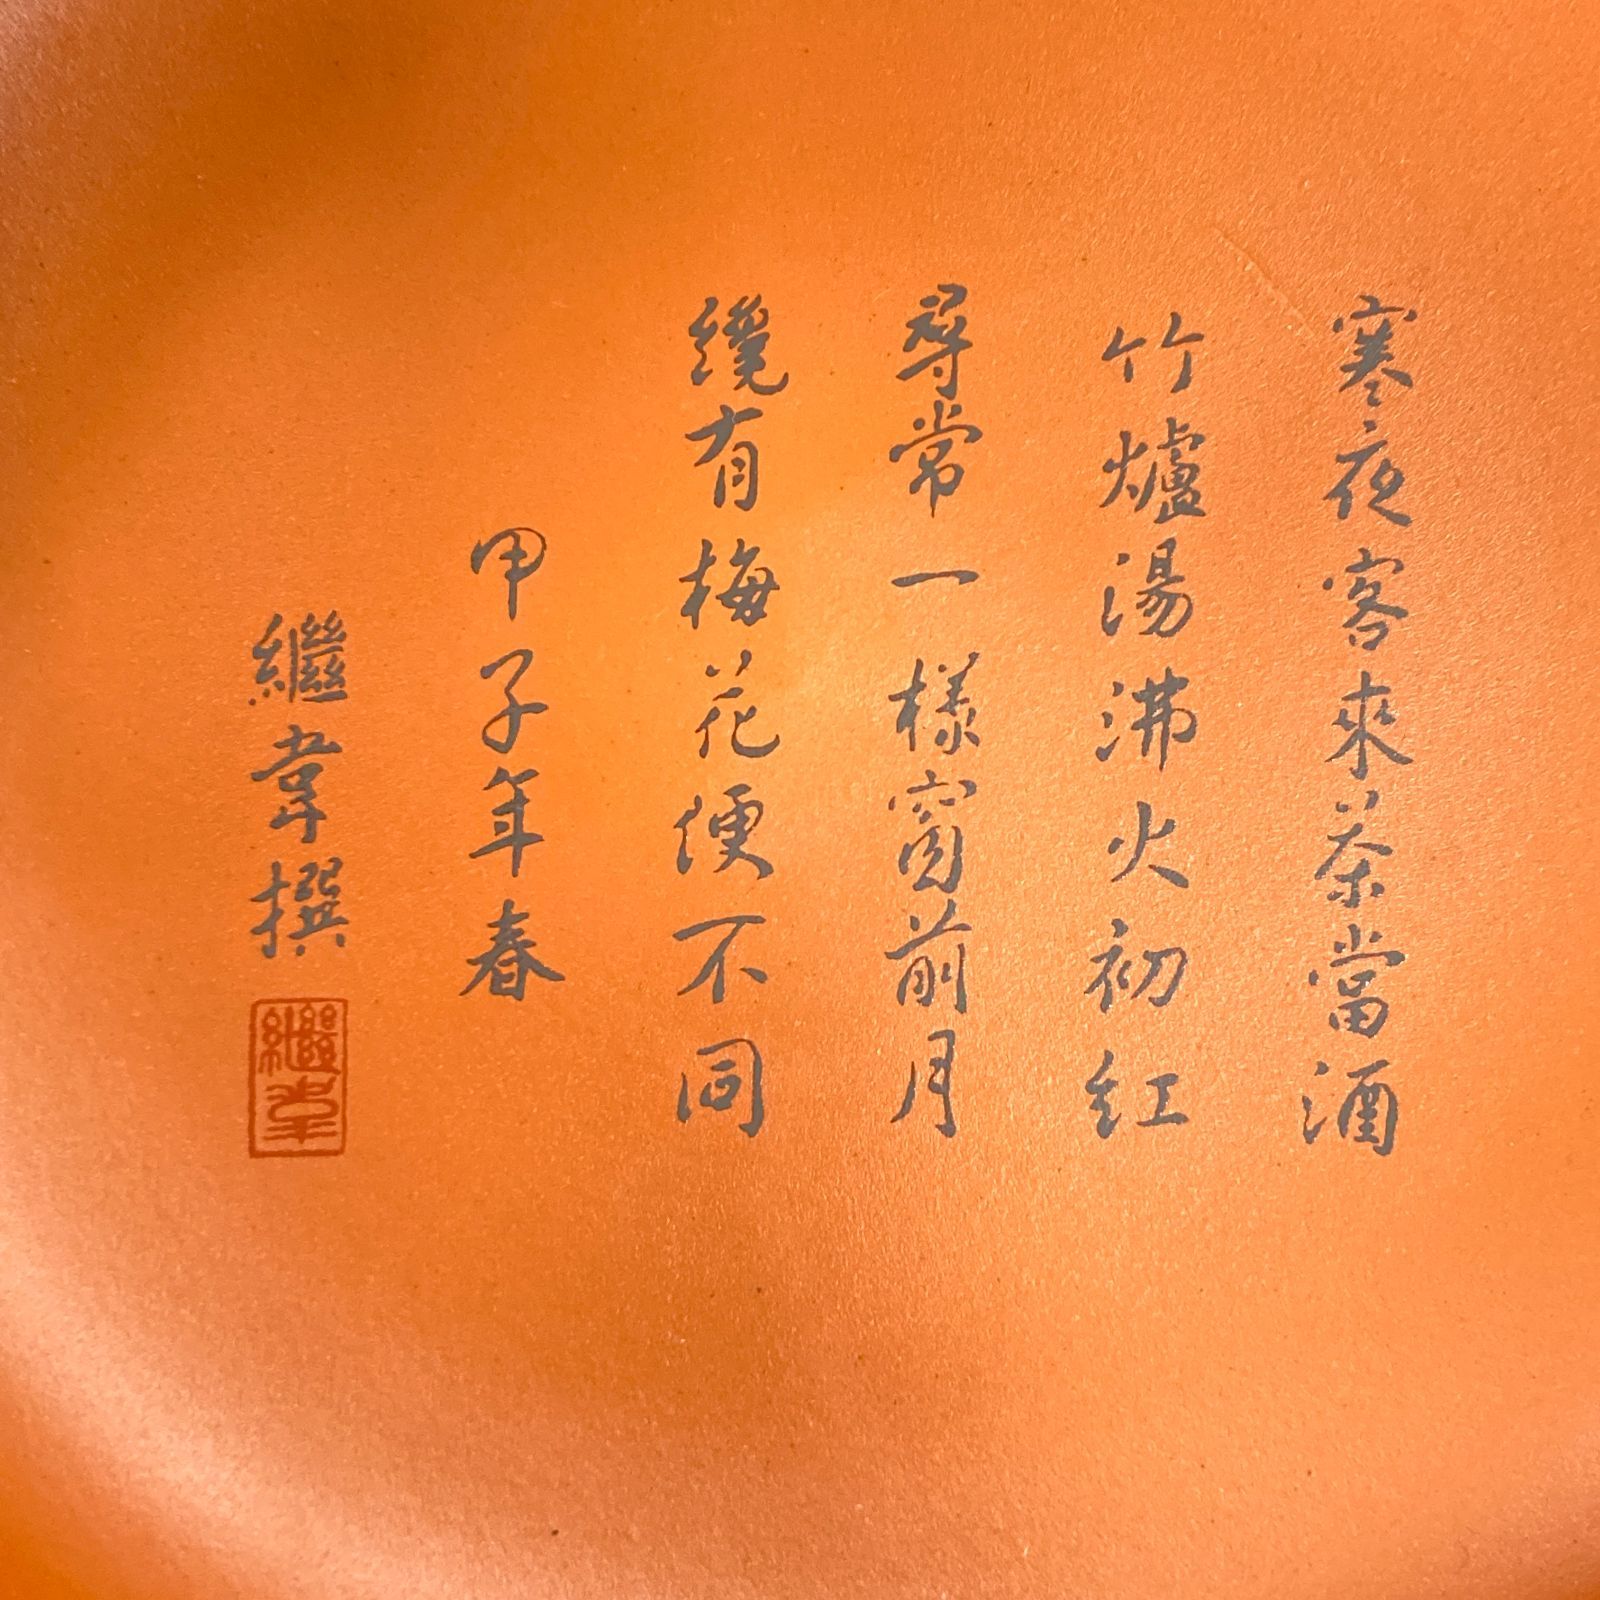 寒夜客來茶當酒
竹爐湯沸火初紅
尋常一樣窗前月
纔有梅花便不同
甲子年春
繼韋撰